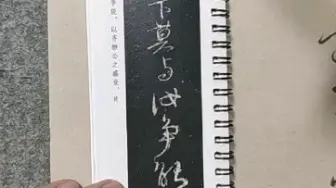 下莫与汝争能
争能。以齐桓公之盛业，片